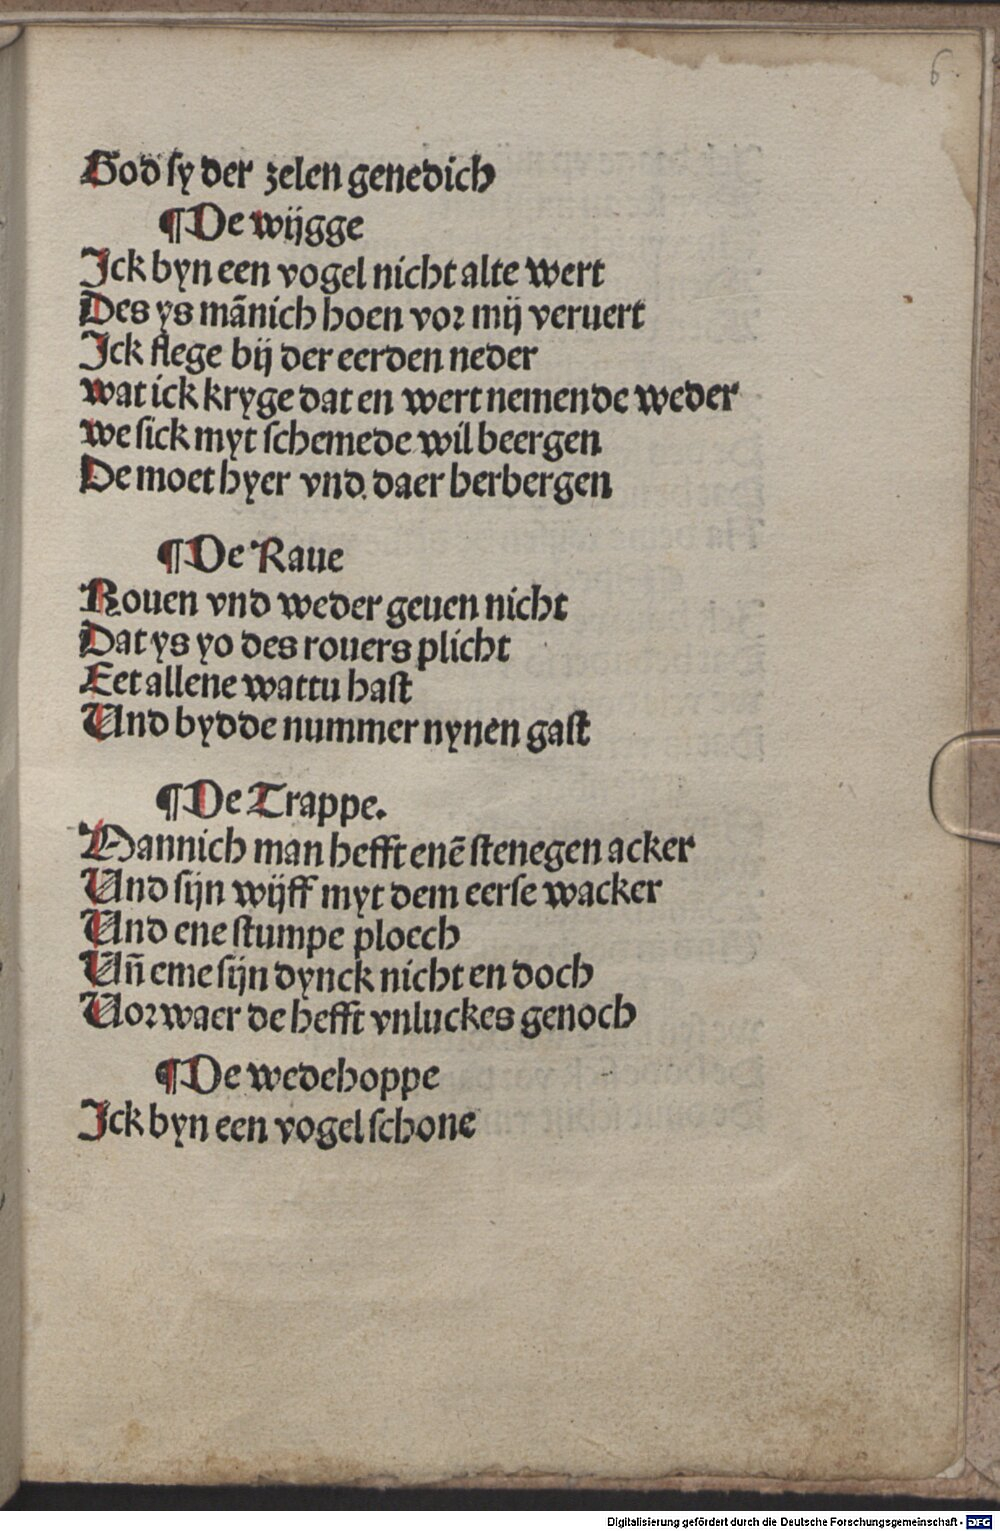 6.
God sy der zelen genedich
¶De wijgge
Ick byn een vogel nicht alte wert
Des ys mānich hoen vor mij veruert
Ick flege bij der eerden neder
wat ick kryge dat en wert nemende weder
we sick myt schemede wil beergen
De moet hyer vnd. daer herbergen
¶De Raue
Rouen vnd weder geuen nicht
Dat ys yo des rouers plicht
Eet allene wattu hast
Vnd bydde nummer nynen gast
¶De Trappe.
Mannich man hefft enē stenegen acker
Vnd sijn wijff myt dem eerse wacker
Vnd ene stumpe ploech
Vn̄ eme sijn dynck nicht en doch
Vorwaer de hefft vnluckes genoch
¶De wedehoppe
Ick byn een vogel schone
Digitalisierung gefördert durch die Deutsche Forschungsgemeinschaft - DFG